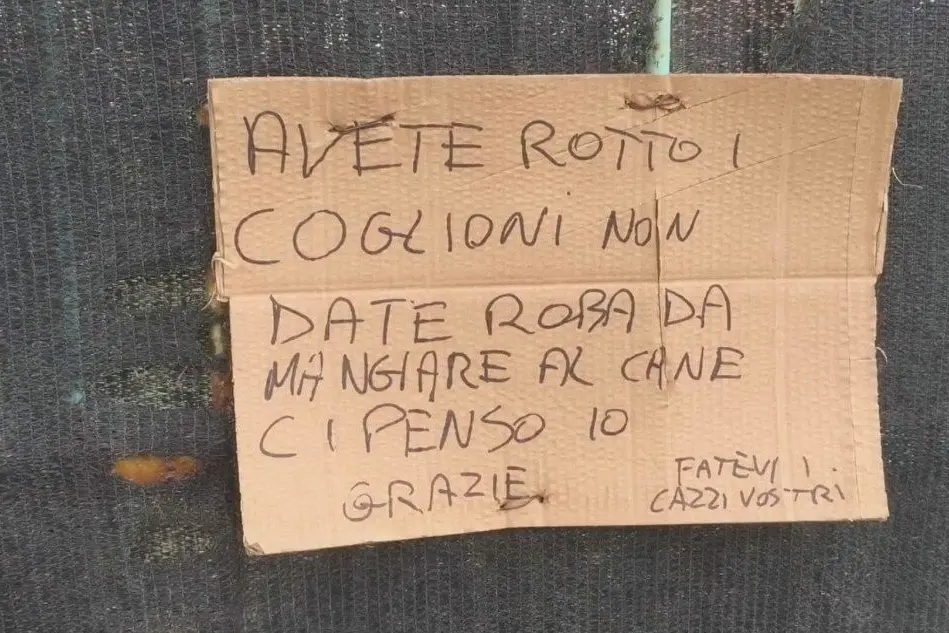 AVETE ROTTO I
COGLIONI NON
DATE ROBA DA
MANGIARE AL CANE
CI PENSO IO
GRAZIE.
FATEVI I
CAZZI VOSTRI.